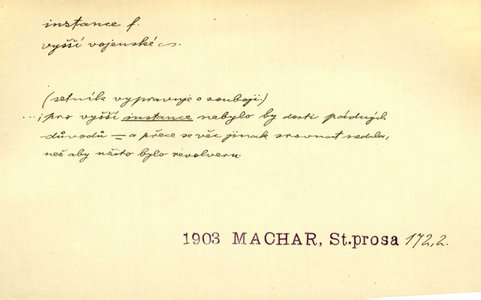 instance f.
vyšší vojenské i.
(setník vypravuje o souboji)
...; pro vyšší instance nebylo by dosti pádných
důvodů — a přece se věc jinak srovnat nedala,
než aby užito bylo revolveru
1903 MACHAR, St.prosa 172,2.